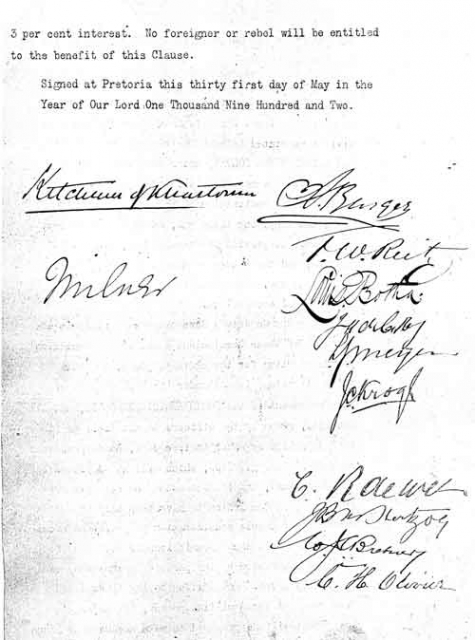 3 per cent interest. No foreigner or rebel will be entitled
to the benefit of this Clause.
Signed at Pretoria this thirty first day of May in the
Year of Our Lord One Thousand Nine Hundred and Two.
Kitchener of Khartoum
Milner
S. Burger
F. W. Reitz
Louis Botha
L J Meyer
J C Krogh
C. R de Wet
J B M Hertzog
W J C Brebner
C. H. Olivier